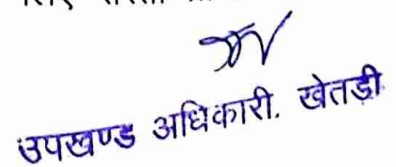 उपखण्ड अधिकारी. खेतडी